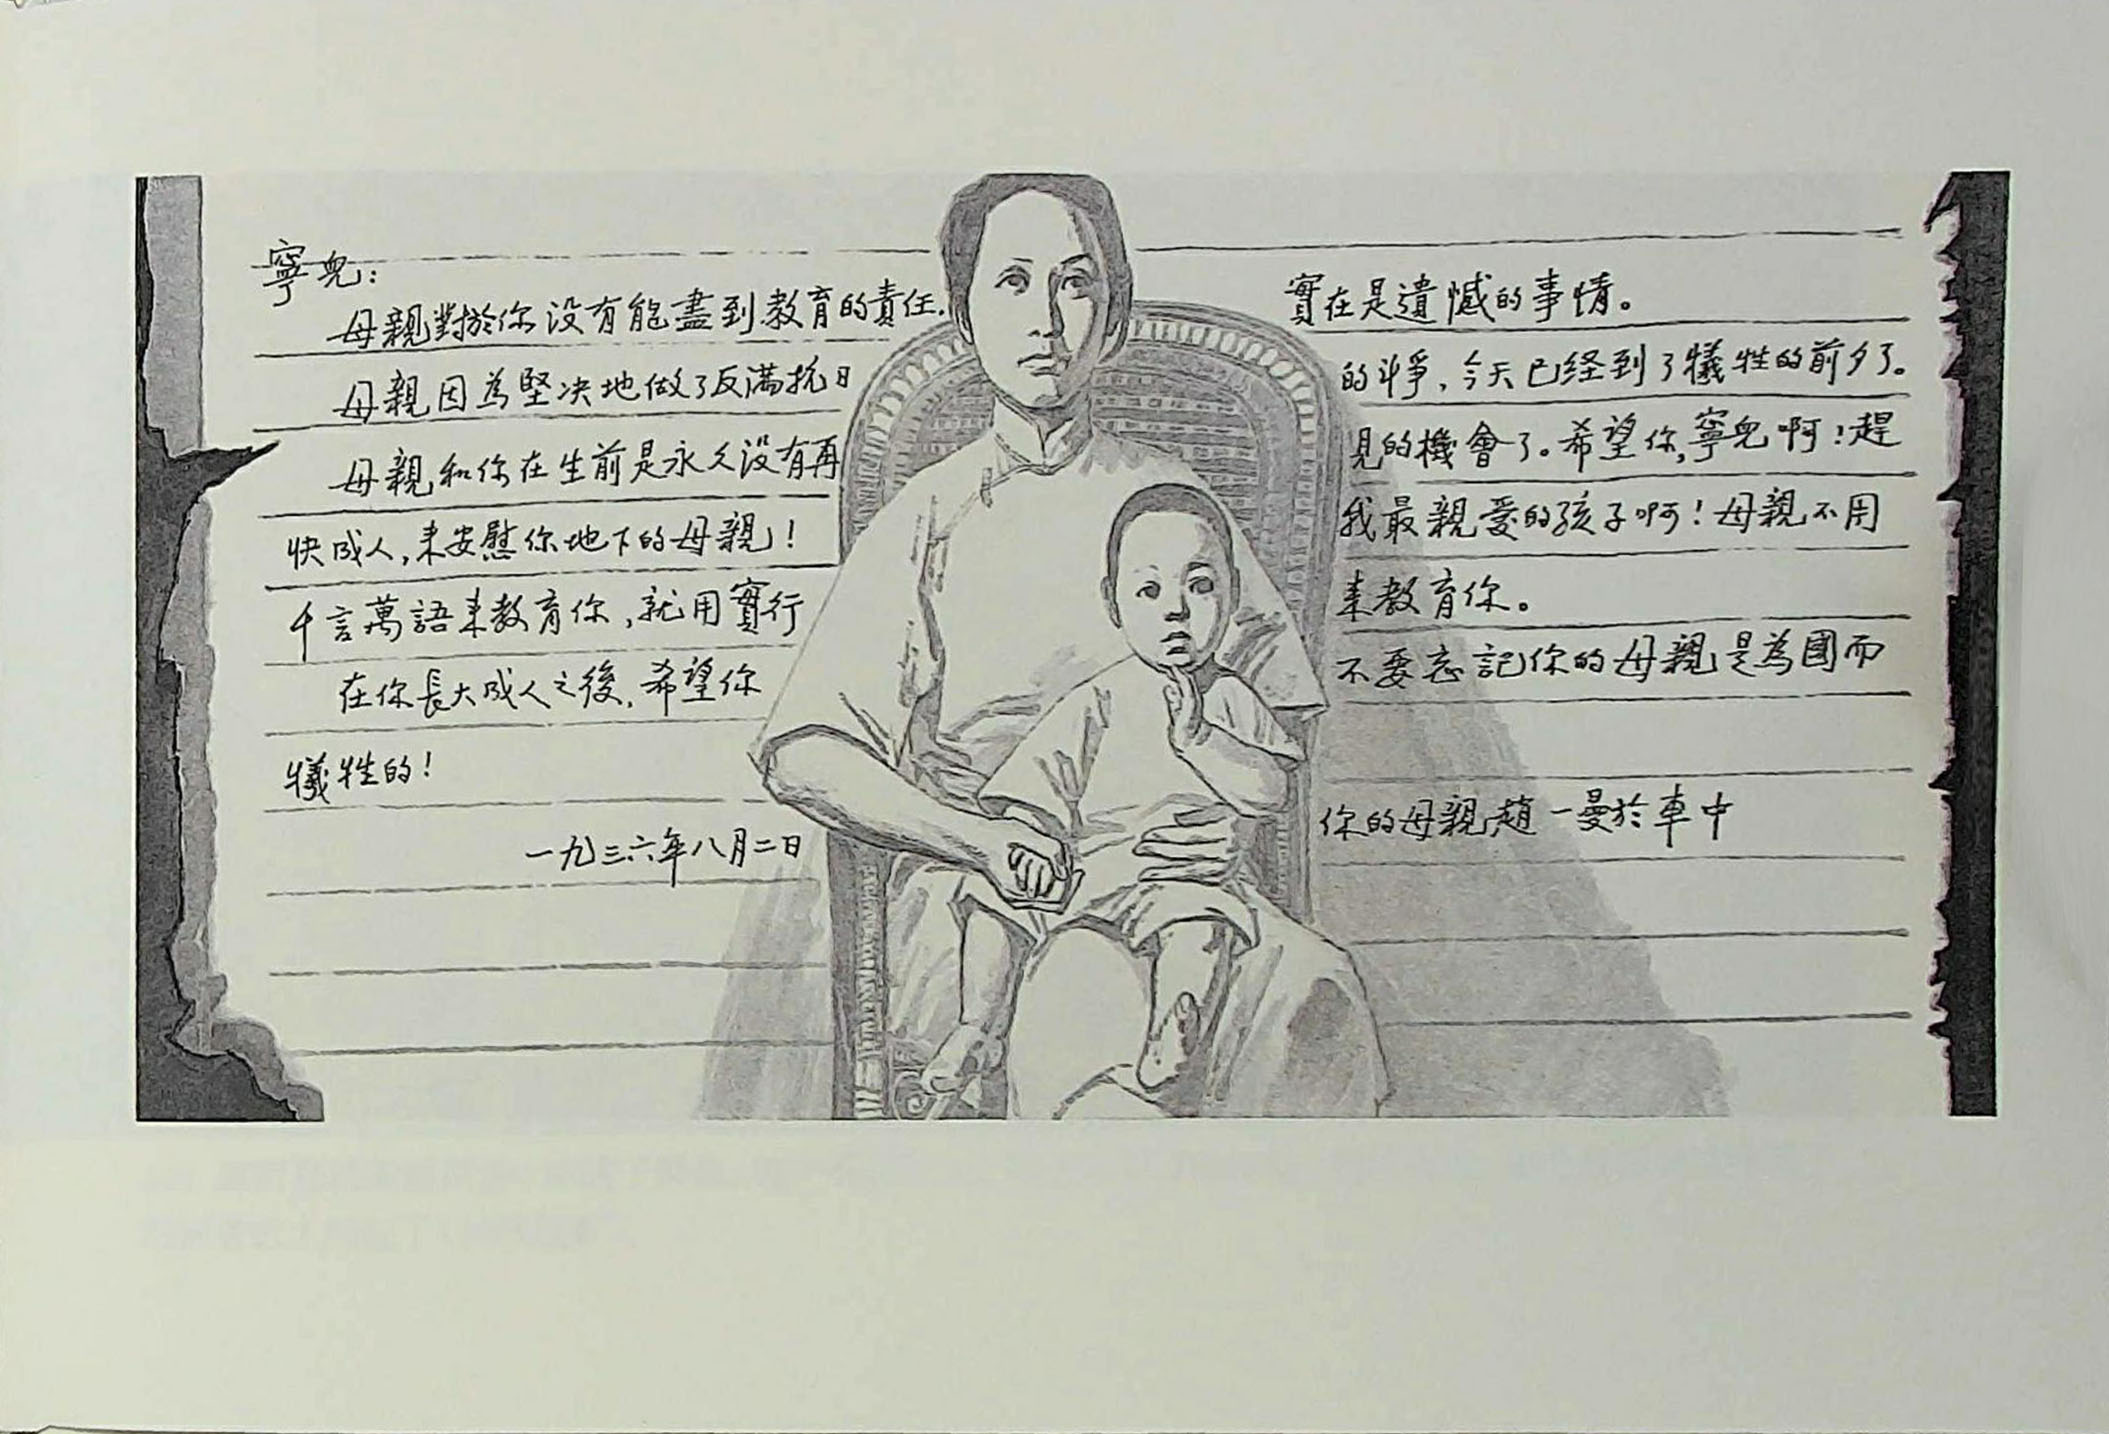 寧兒：
母親對於你没有能盡到教育的責任，實在是遺憾的事情。
母親因為堅决地做了反满抗日的斗爭，今天已经到了犧牲的前夕了。
母親和你在生前是永久没有再見的機會了。希望你，寧兒啊！趕
快成人，来安慰你地下的母親！我最親愛的孩子啊！母親不用
千言萬語来教育你，就用實行来教育你。
在你長大成人之後，希望你不要忘記你的母親是為國而
犧牲的！
一九三六年八月二日 你的母親趙一曼於車中